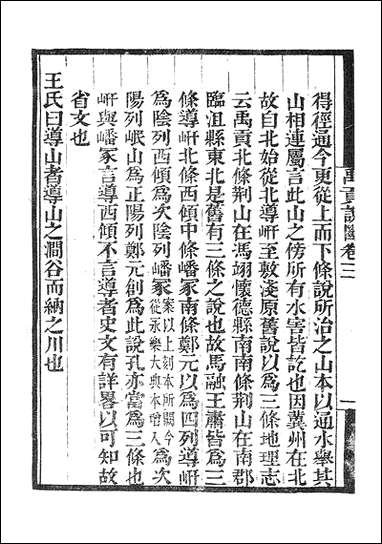 禹貢說斷卷三
一
得徑通今更從上而下條說所治之山本以通水舉其
山相連屬言此山之傍所有水害皆訖也因冀州在北
故自北始從北導岍至敷淺原舊說以爲三條地理志
云禹貢北條荆山在馮翊懷德縣南南條荆山在南郡
臨沮縣東北是舊有三條之說也故馬融王肅皆爲三
條導岍北條西傾中條嶓冢南條鄭元以爲四列導岍
爲陰列西傾爲次陰列嶓冢案以上刻本所闕今從永樂大典本增入爲次
陽列岷山爲正陽列鄭元創爲此說孔亦當爲三條也
岍與嶓冢言導西傾不言導者史文有詳畧以可知故
省文也
王氏曰導山者導山之澗谷而納之川也